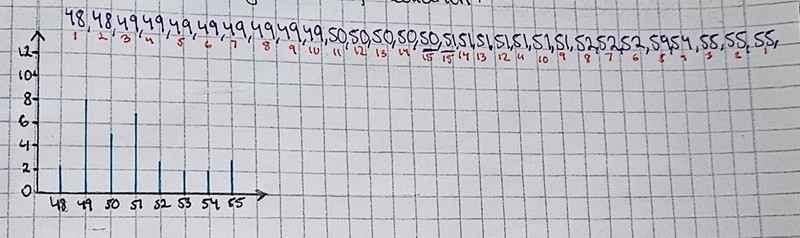 48,48,49,49,49,49,49,49,49,49,50,50,50,50,50,51,51,51,51,51,51,51,52,52,52,54,54,55,55,55,
1 2 3 4 5 6 7 8 9 10 11 12 13 14 15 15 14 13 12 11 10 9 8 7 6 5 4 3 2 1
12
10
8
6
4
2
0
48 49 50 51 52 53 54 55